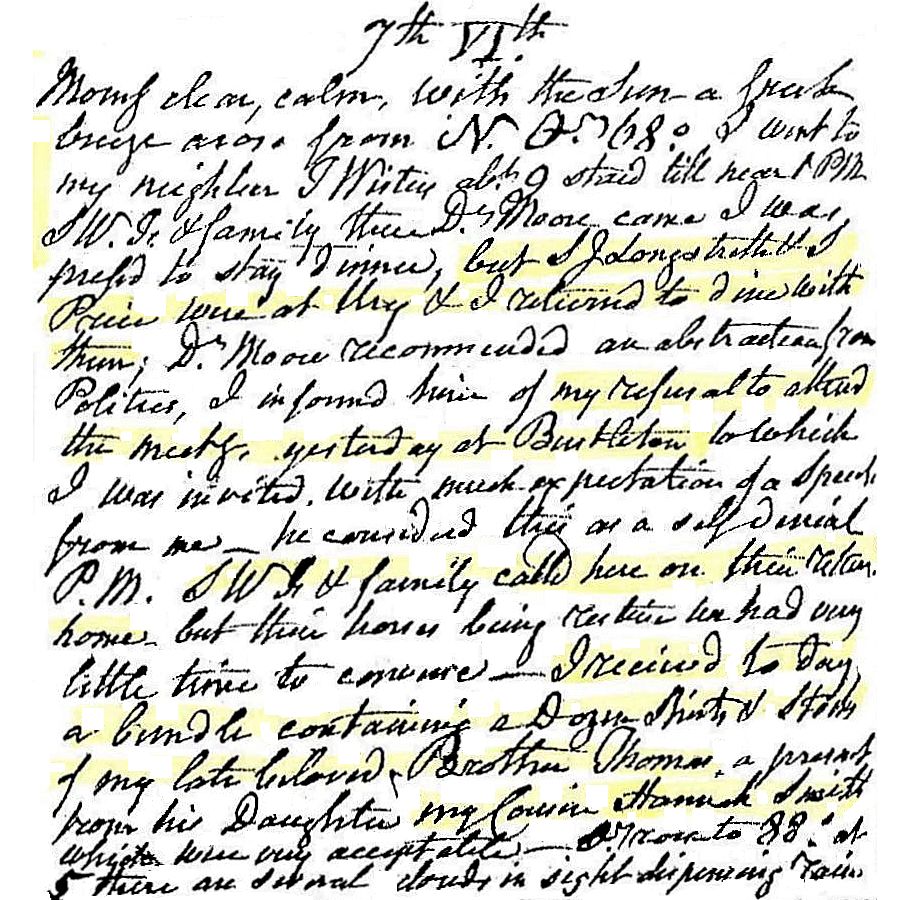 7th VI.th
Morng clear, calm, with the Sun a fresh
breeze arose from N. 68° I went to
my neighbor J Wister abt. 9 staid till near 1 PM
S W. Jr & family there Dr. Moore came I was
press'd to stay dinner, but S J Longstreth & S
Price were at Ury & I returned to dine with
them; Dr Moore recommended an abstraction from
Politics, I informd him of my refusal to attend
the meetg. yesterday at Bustleton to which
I was invited with much expectation of a speech
from me — he considerd this as a self denial
P.M. S W Jr & family calld here on their return
home but their horses being restive we had very
little time to converse — I received to day
a bundle containing a Dozen Shirts & Stocks
of my late beloved Brother Thomas a present
from his Daughter my Cousin Hannah Smith
which were very acceptable — rose to 88° at
5 there are several clouds in sight dispensing rain